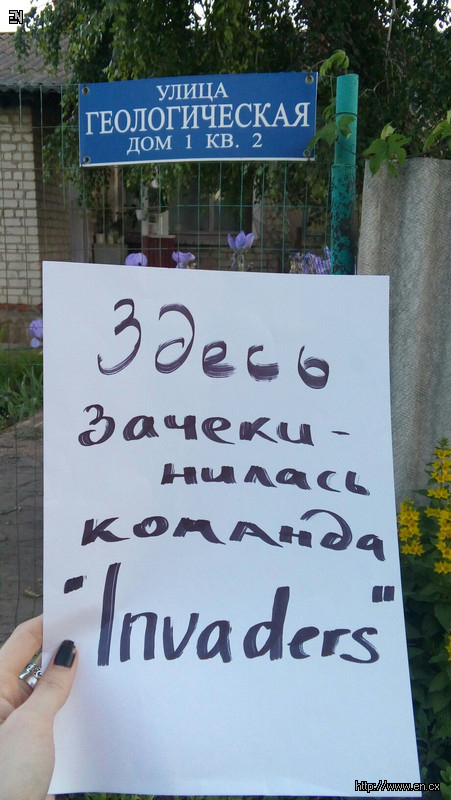 EN
УЛИЦА
ГЕОЛОГИЧЕСКАЯ
ДОМ 1 КВ. 2
Здесь
зачеки-
нилась
команда
"Invaders"
http://www.en.cx